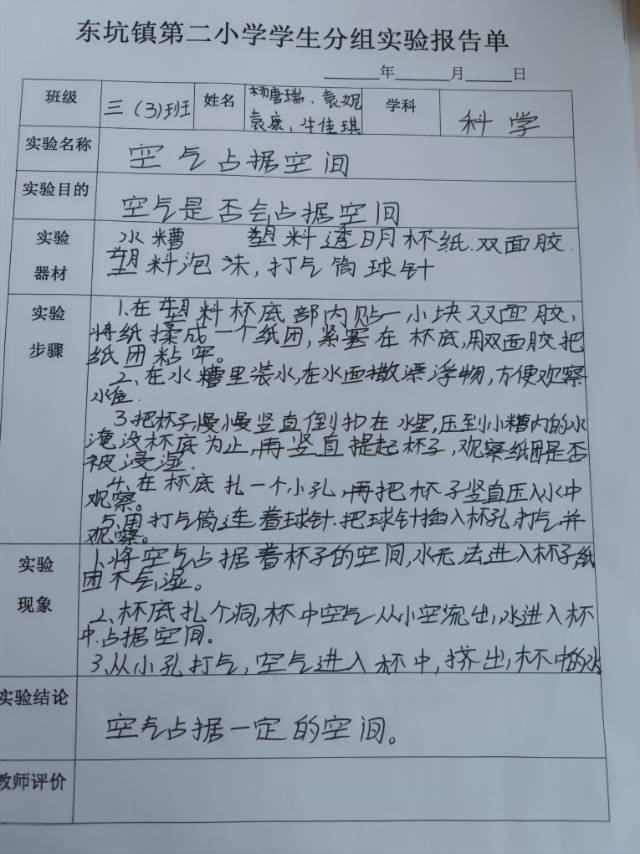 东坑镇第二小学学生分组实验报告单
年 月 日
班级 三(3)班 姓名 杨唐瑞、袁妮 学科 科学
袁康,牛佳琪
实验名称 空气占据空间
实验目的 空气是否会占据空间
实验 水糟 塑料透明杯纸.双面胶.
器材 塑料泡沫,打气筒球针
实验 1.在塑料杯底部内贴一小块双面胶,
步骤 将纸揉成一个纸团,紧塞在杯底,用双面胶把
纸团粘牢。
2、在水糟里装水,在水面撒漂浮物,方便观察
水位.
3.把杯子慢慢竖直倒扣在水里,压到小糟内的水
淹没杯底为止,再竖直提起杯子,观察纸团是否
被浸湿.
4.在杯底扎一个小孔,再把杯子竖直压入水中
观察。
5.用打气筒连着球针.把球针插入杯孔打气并
观察。
实验 1.将空气占据着杯子的空间,水无法进入杯子,纸
现象 团不会湿。
2、杯底扎个洞,杯中空气从小空流出,水进入杯
中.占据空间。
3.从小孔打气,空气进入杯中,挤出,杯中的水
实验结论 空气占据一定的空间。
教师评价